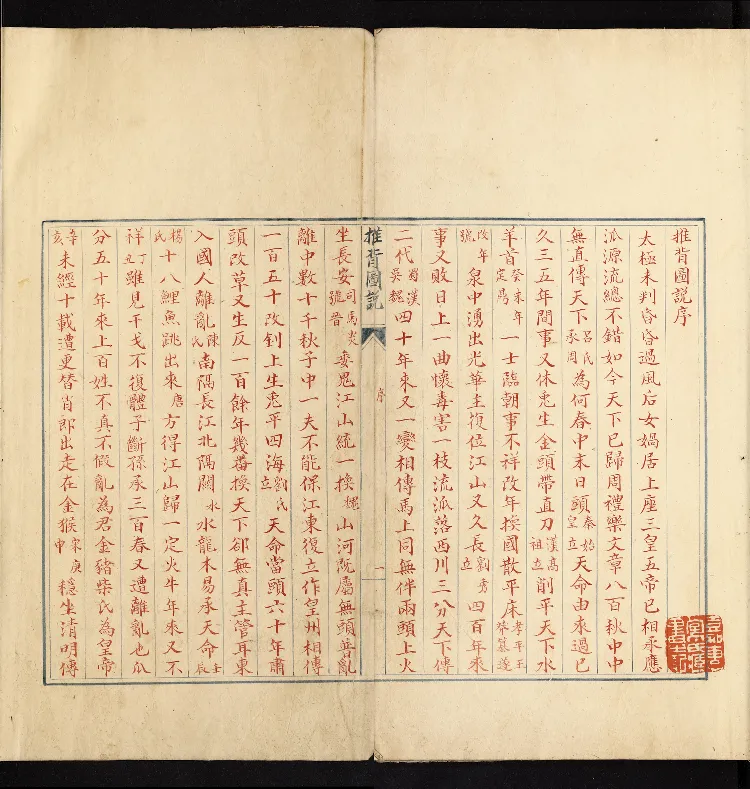 推背圖說序
太極未判昏昏過風后女媧居上座三皇五帝已相承應
派源流總不錯如今天下已歸周禮樂文章八百秋中中
無直傳天下呂氏承周為何春中末日頭秦始皇立天命由來過已
久三五年間事又休兎生金頭帶直刀漢高祖立削平天下水
羊首癸未年定為一士臨朝事不祥改年換國散平床孝平王莽篡遂
改年號泉中湧出光華主復位江山又久長劉秀立四百年來
事又敗日上一曲懷毒害一枝流派落西川三分天下傳
二代蜀漢吳魏四十年來又一變相傳馬上同無伴兩頭上火
坐長安司馬炎號晉委鬼江山統一換魏山河旣屬無頭善亂
離中數十千秋子中一夫不能保江東復立作皇州相傳
一百五十改釗上生兎平四海劉氏立天命當頭六十年肅
頭改草又生反一百餘年幾番換天下卻無真主管耳東
入國人離亂陳氏南隅長江北隅關水水龍木易承天命壬辰
楊氏十八鯉魚跳出來唐方得江山歸一定火牛年來又不
祥丁丑雖見干戈不復體子斷孫承三百春又遭離亂也瓜
分五十年來上百姓不真不假亂為君金豬柴氏為皇帝
辛亥未經十載遭更替肖郎出走在金猴宋庚申穩坐清明傳
推背圖說
序
一